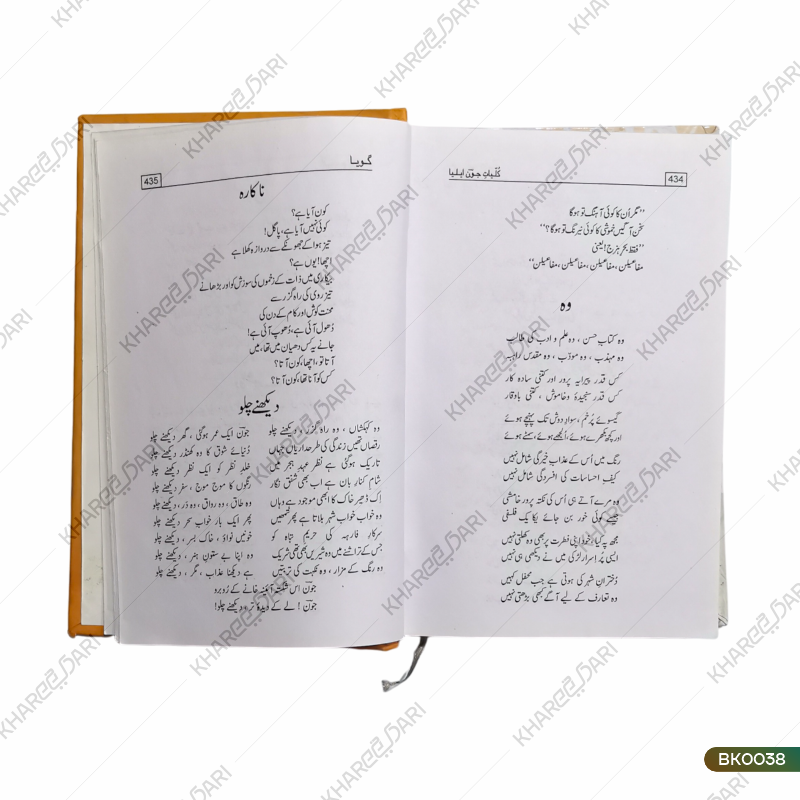 434
کُلیاتِ جونؔ ایلیا
”مگر اُن کا کوئی آہنگ تو ہوگا
سخن آگیں خموشی کا کوئی نیرنگ تو ہوگا؟“
”فقط بحرِ ہزج! یعنی
مفاعیلن، مفاعیلن، مفاعیلن، مفاعیلن“
وہ
وہ کتابِ حسن، وہ علم و ادب کی طالبہ
وہ مہذب، وہ مؤدب، وہ مقدس راہبہ
کس قدر پیرایہ پرور اور کتنی سادہ کار
کس قدر سنجیدہ و خاموش، کتنی باوقار
گیسوئے پُرخم، سوادِ دوش تک پہنچے ہوئے
اور کچھ بکھرے ہوئے، اُلجھے ہوئے، سمٹے ہوئے
رنگ میں اُس کے عذابِ خیرگی شامل نہیں
کیفِ احساسات کی افسردگی شامل نہیں
وہ مرے آتے ہی اُس کی نکتہ پرور خامشی
جیسے کوئی حُور بن جائے یکایک فلسفی
مجھ پہ کیا، خود اپنی فطرت پر بھی وہ کھلتی نہیں
ایسی پُراسرار لڑکی میں نے دیکھی ہی نہیں
دُخترانِ شہر کی ہوتی ہے جب محفل کہیں
وہ تعارف کے لیے آگے کبھی بڑھتی نہیں
گویا
435
ناکارہ
کون آیا ہے؟
کوئی نہیں آیا ہے، پاگل!
تیز ہوا کے جھونکے سے دروازہ کھلا ہے
اچھا! یوں ہے؟
بیکاری میں ذات کے زخموں کی سوزش کو اور بڑھانے
تیز روی کی راہ گزر سے
محنت کوش اور کام کے دن کی
دُھول آئی ہے، دُھوپ آئی ہے!
جانے یہ کس دھیان میں تھا، میں
آتا تو، اچھا، کون آتا؟
کس کو آنا تھا، کون آتا؟
دیکھتے چلو
وہ کہکشاں، وہ راہ گزر، دیکھتے چلو جونؔ ایک عمر ہو گئی، گھر دیکھتے چلو
رقصاں تھیں زندگی کی طرح داریاں جہاں دُنیائے شوق کا وہ کھنڈر دیکھتے چلو
تاریک ہو گئی ہے نظر عہدِ ہجر میں خلدِ نظر کو ایک نظر دیکھتے چلو
شام کنارِ بان ہے اب بھی شفق نگار رنگوں کا موج موج سفر دیکھتے چلو
اِک ڈھیر خاک کا ابھی موجود ہے وہاں وہ طاق، وہ رواق، وہ در، دیکھتے چلو
وہ خواب خواب شہر بلاتا ہے پھر تمھیں پھر ایک بار خوابِ سحر دیکھتے چلو
سرکارِ فارہہ کی حریمِ تباہ کو خونیں نواؤ، خاک بسر، دیکھتے چلو
جس کے تراشنے میں وہ شیریں بھی تھی شریک وہ اپنا بے ستونِ ہنر، دیکھتے چلو
وہ رنگ کے مزار، وہ نکہت کی تربتیں ہے دیکھنا عذاب، مگر، دیکھتے چلو
جونؔ اِس شکستہ آئنہ خانے کے رُوبرو
جونؔ! لے کے دیدۂ تر، دیکھتے چلو!
KHAREEDARI
BK0038